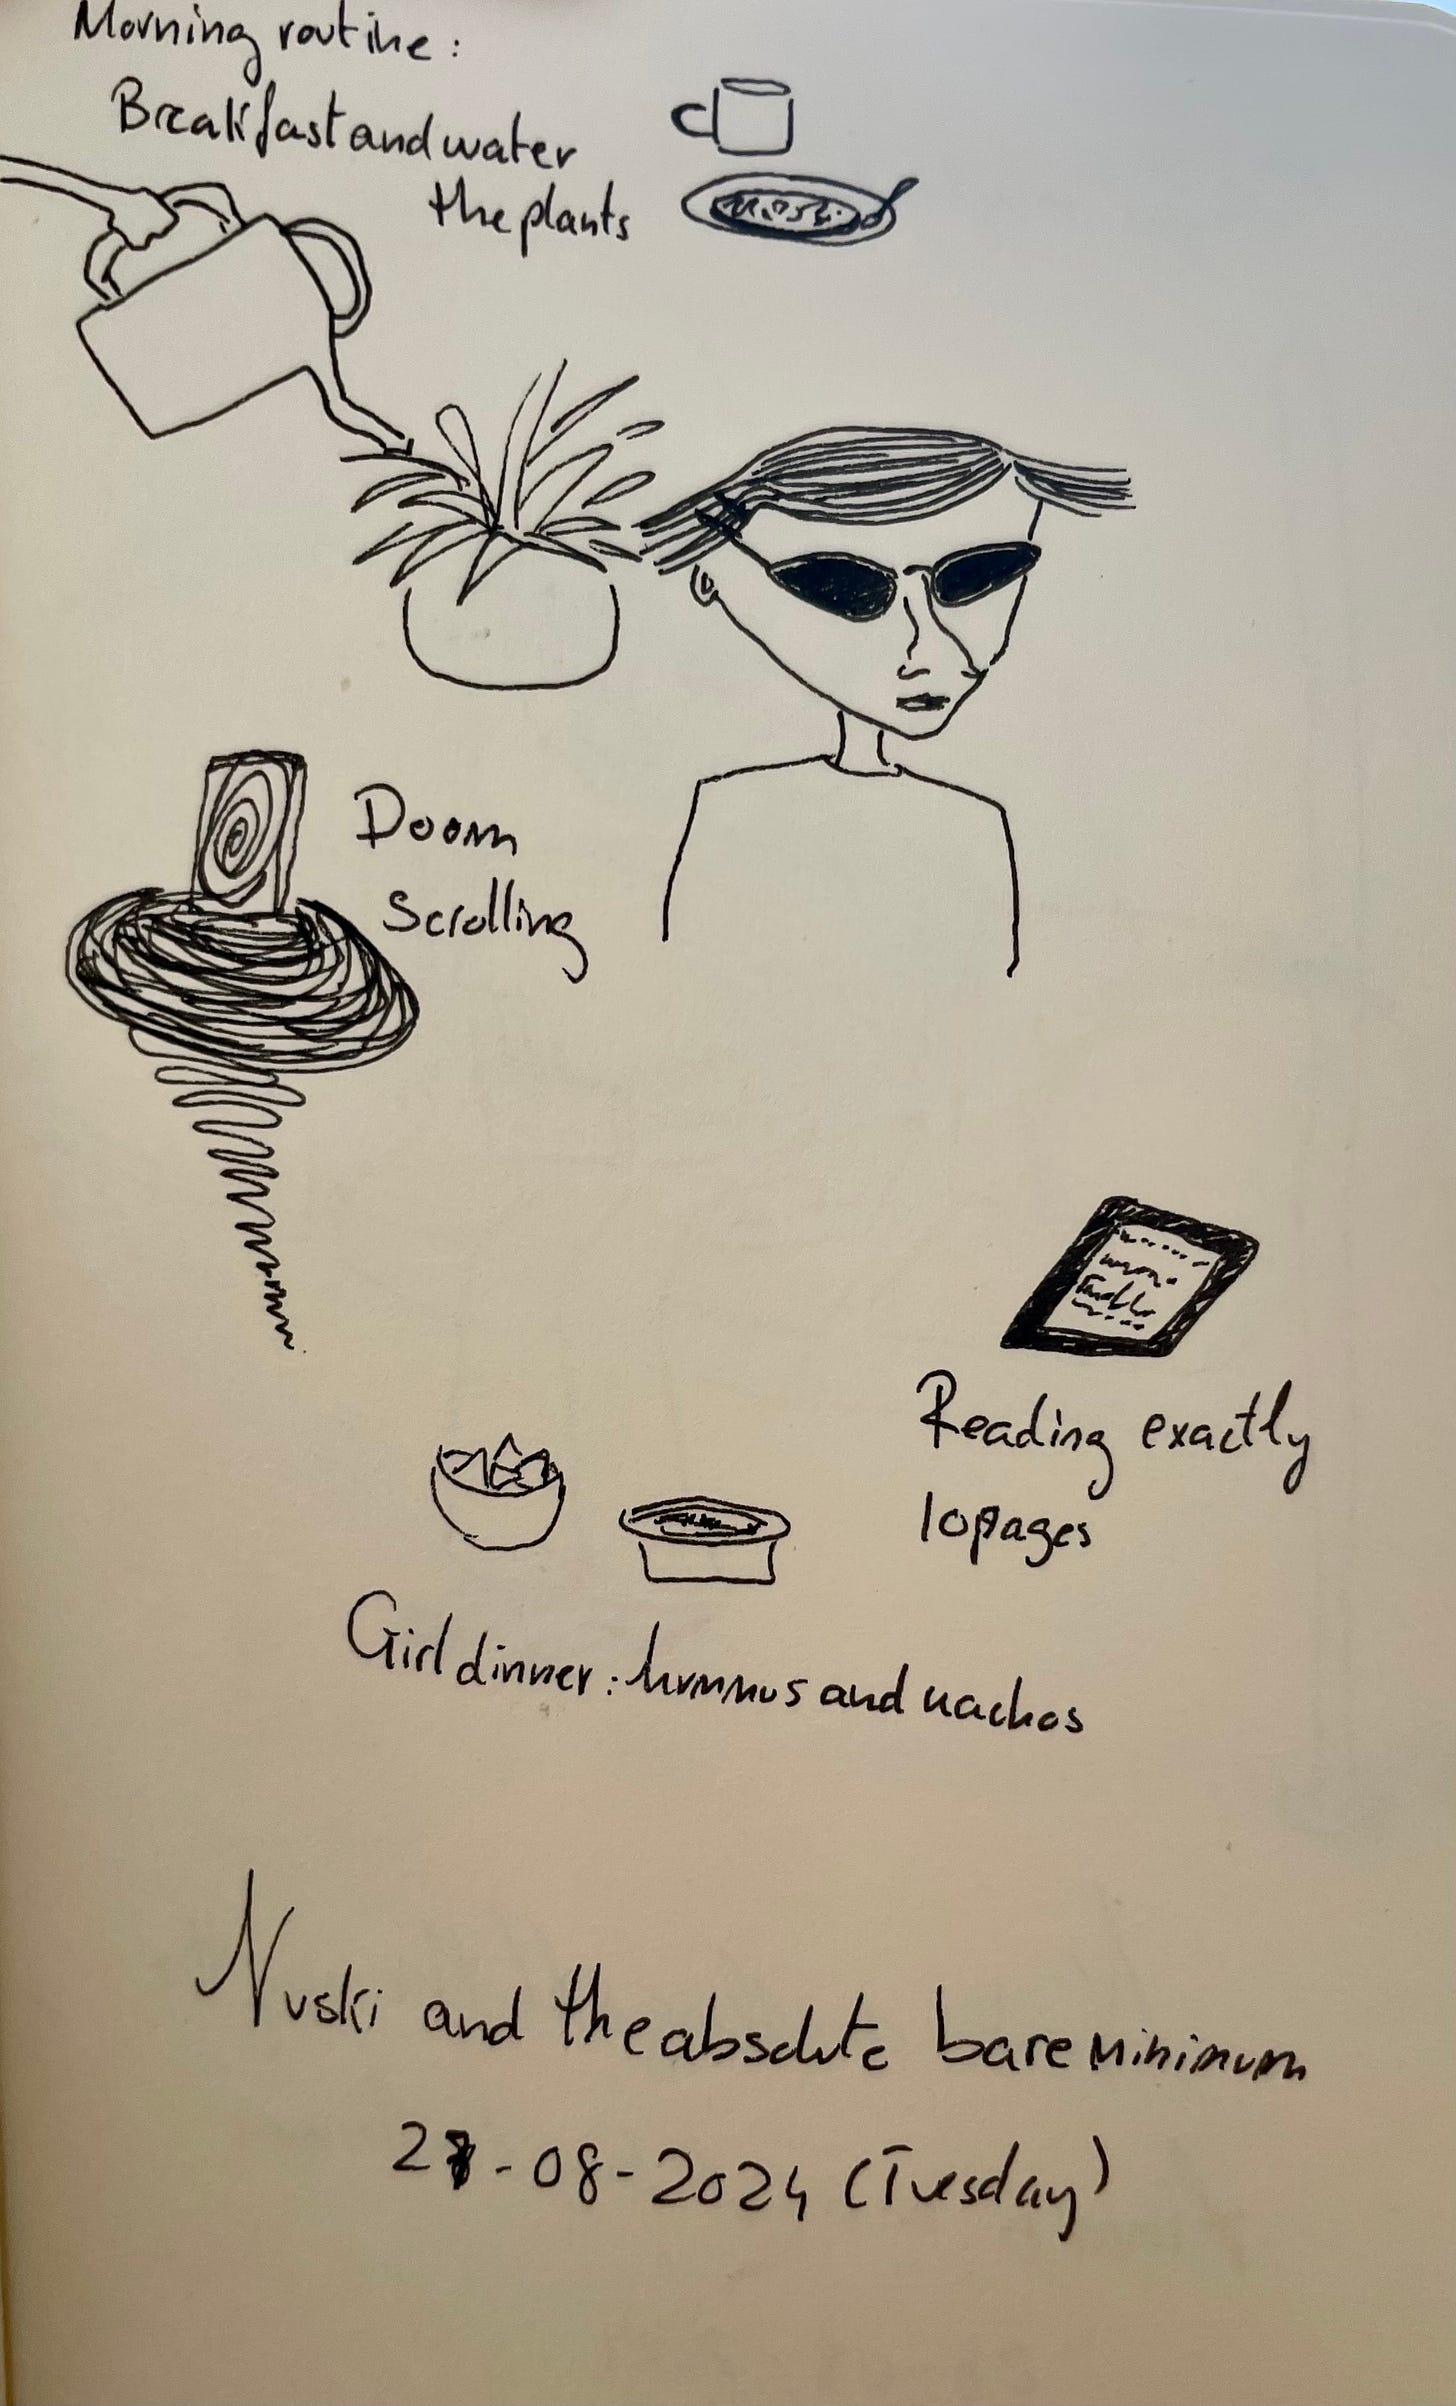 Morning routine:
Breakfast and water
the plants
Doom
Scrolling
Reading exactly
10 pages
Girl dinner: hummus and nachos
Nuski and the absolute bare minimum
27-08-2024 (Tuesday)